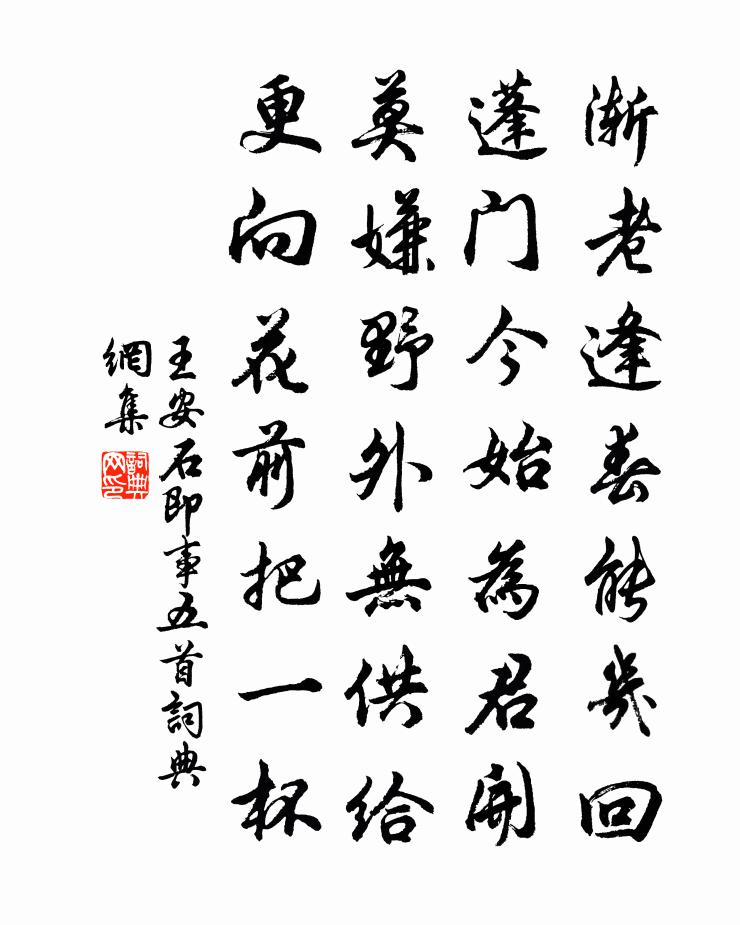 漸老逢春能幾回
蓬門今始為君開
莫嫌野外無供給
更向花前把一杯
王安石即事五首詞典
網集
詞典
网印